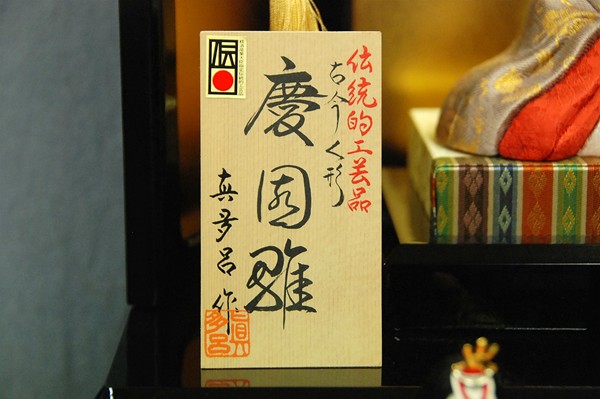 伝統的工芸品
古今人形
慶園雛
真多呂作
眞多呂